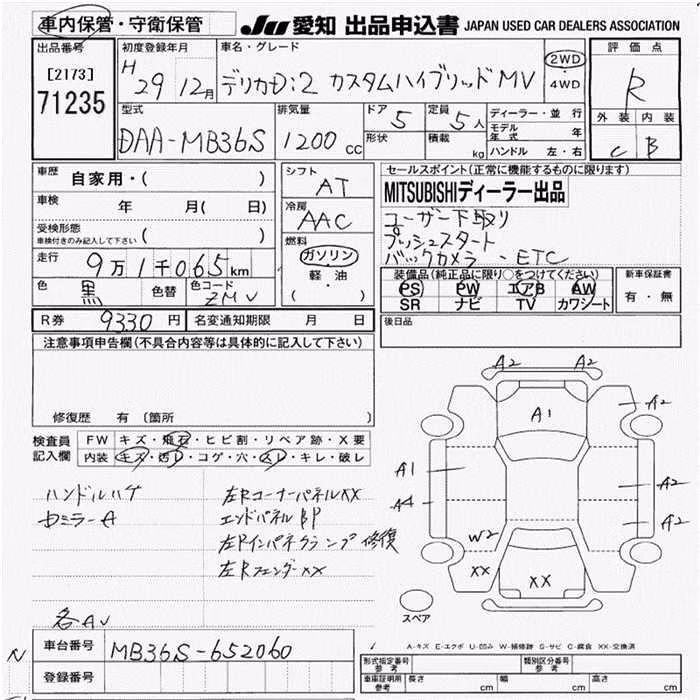 車内保管・守衛保管
JU 愛知 出品申込書 JAPAN USED CAR DEALERS ASSOCIATION
出品番号
[2173]
71235
初度登録年月
H 29 12月
車名・グレード
デリカD:2 カスタムハイブリッドMV
2WD
・
4WD
評価点
R
外装 内装
C B
型式
DAA-MB36S
排気量
1200 CC
ドア 5
形状
定員 5人
積載 kg
ディーラー・並行
モデル年式 年
ハンドル 左・右
車歴 自家用・( )
車検 年 月( 日)
受検形態
車検付きのみ記入して下さい ( )
走行 9万1千065km
色 黒 色替 色コード ZMV
シフト
AT
冷房
AAC
燃料
ガソリン
軽油
( )
セールスポイント(正常に機能するものに限ります)
MITSUBISHIディーラー出品
ユーザー下取り
プッシュスタート
バックカメラ・ETC
装備品(純正品に限り○をつけてください)
PS PW エアB AW
SR ナビ TV カワシート
新車保証書
有・無
R券 9330円 名変通知期限 月 日
後日品
注意事項申告欄(不具合内容等は具体的に記入して下さい)
修復歴 有 〔箇所 〕
検査員
記入欄
FW キズ・飛石・ヒビ割・リペア跡・X要
内装 キズ・汚レ・コゲ・穴・スレ・キレ・破レ
ハンドルハゲ
左RコーナーパネルXX
エンドパネルBP
左Rインパネクランプ修復
左RフェンダーXX
A2 A2
A1
A2
A1
A2
A4
A2
W2
XX
XX
スペア
A-キズ E-エクボ U-凹み W-補修跡 S-サビ C-腐食 XX-交換済
車台番号 MB36S-652060
登録番号
N
形式指定番号
参考
類別区分番号
参考
車庫証明用
参考
長さ cm 幅 cm 高さ cm